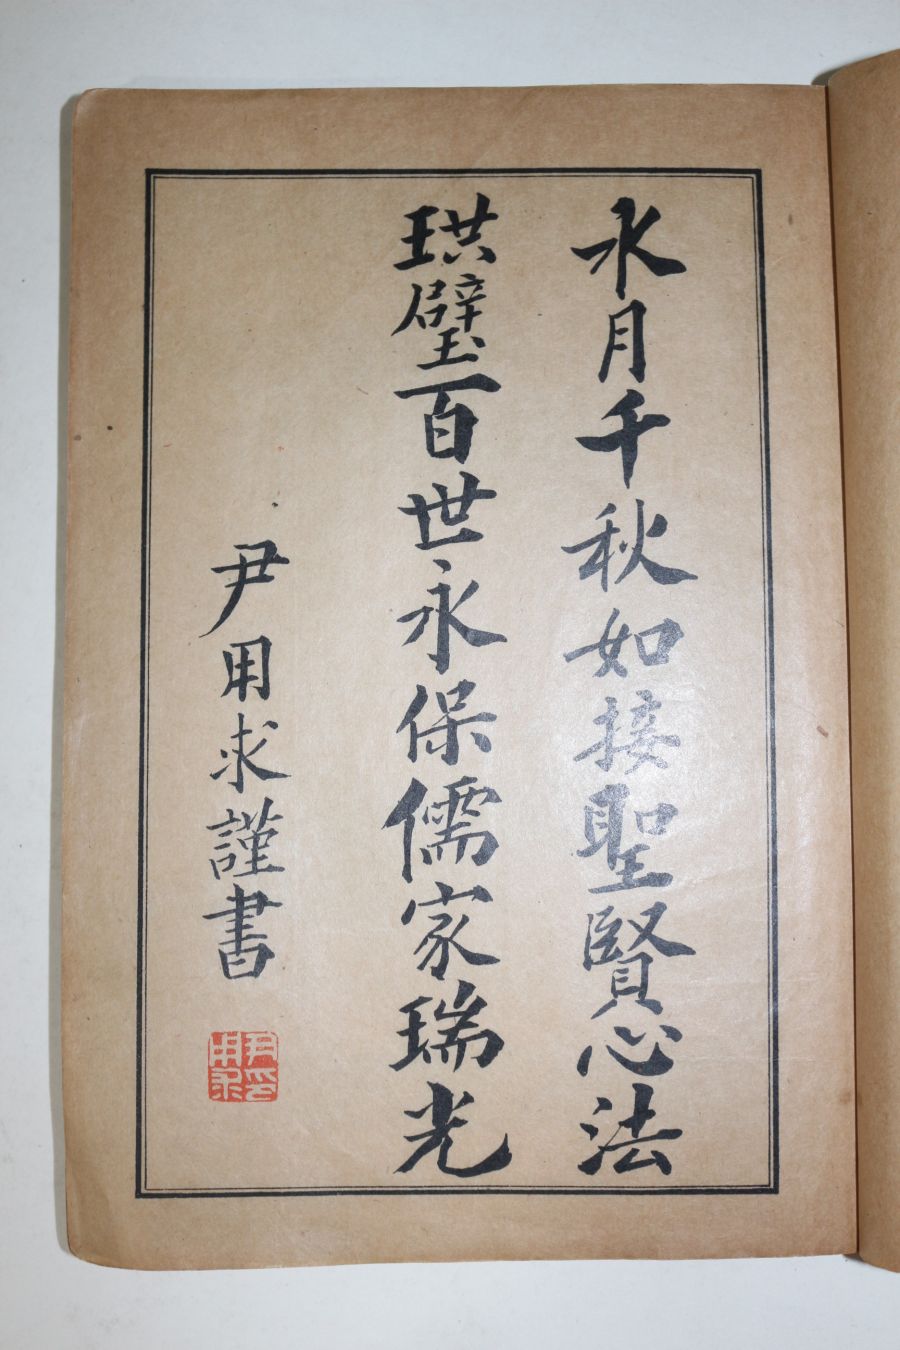 水月千秋如接聖賢心法
珙璧百世永保儒家瑞光
尹用求謹書
尹用求印